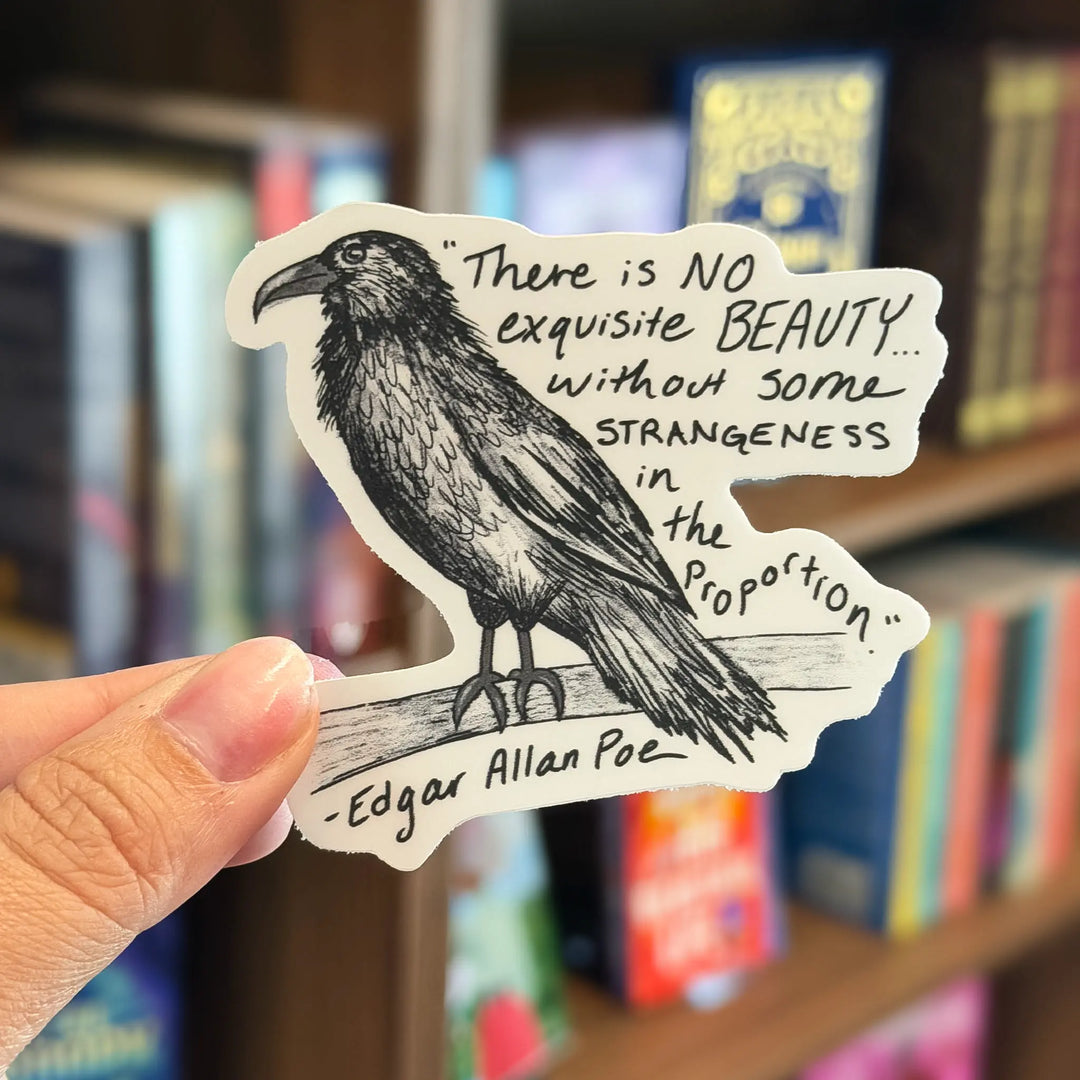 "There is NO
exquisite BEAUTY...
without some
STRANGENESS
in
the
proportion."
-Edgar Allan Poe